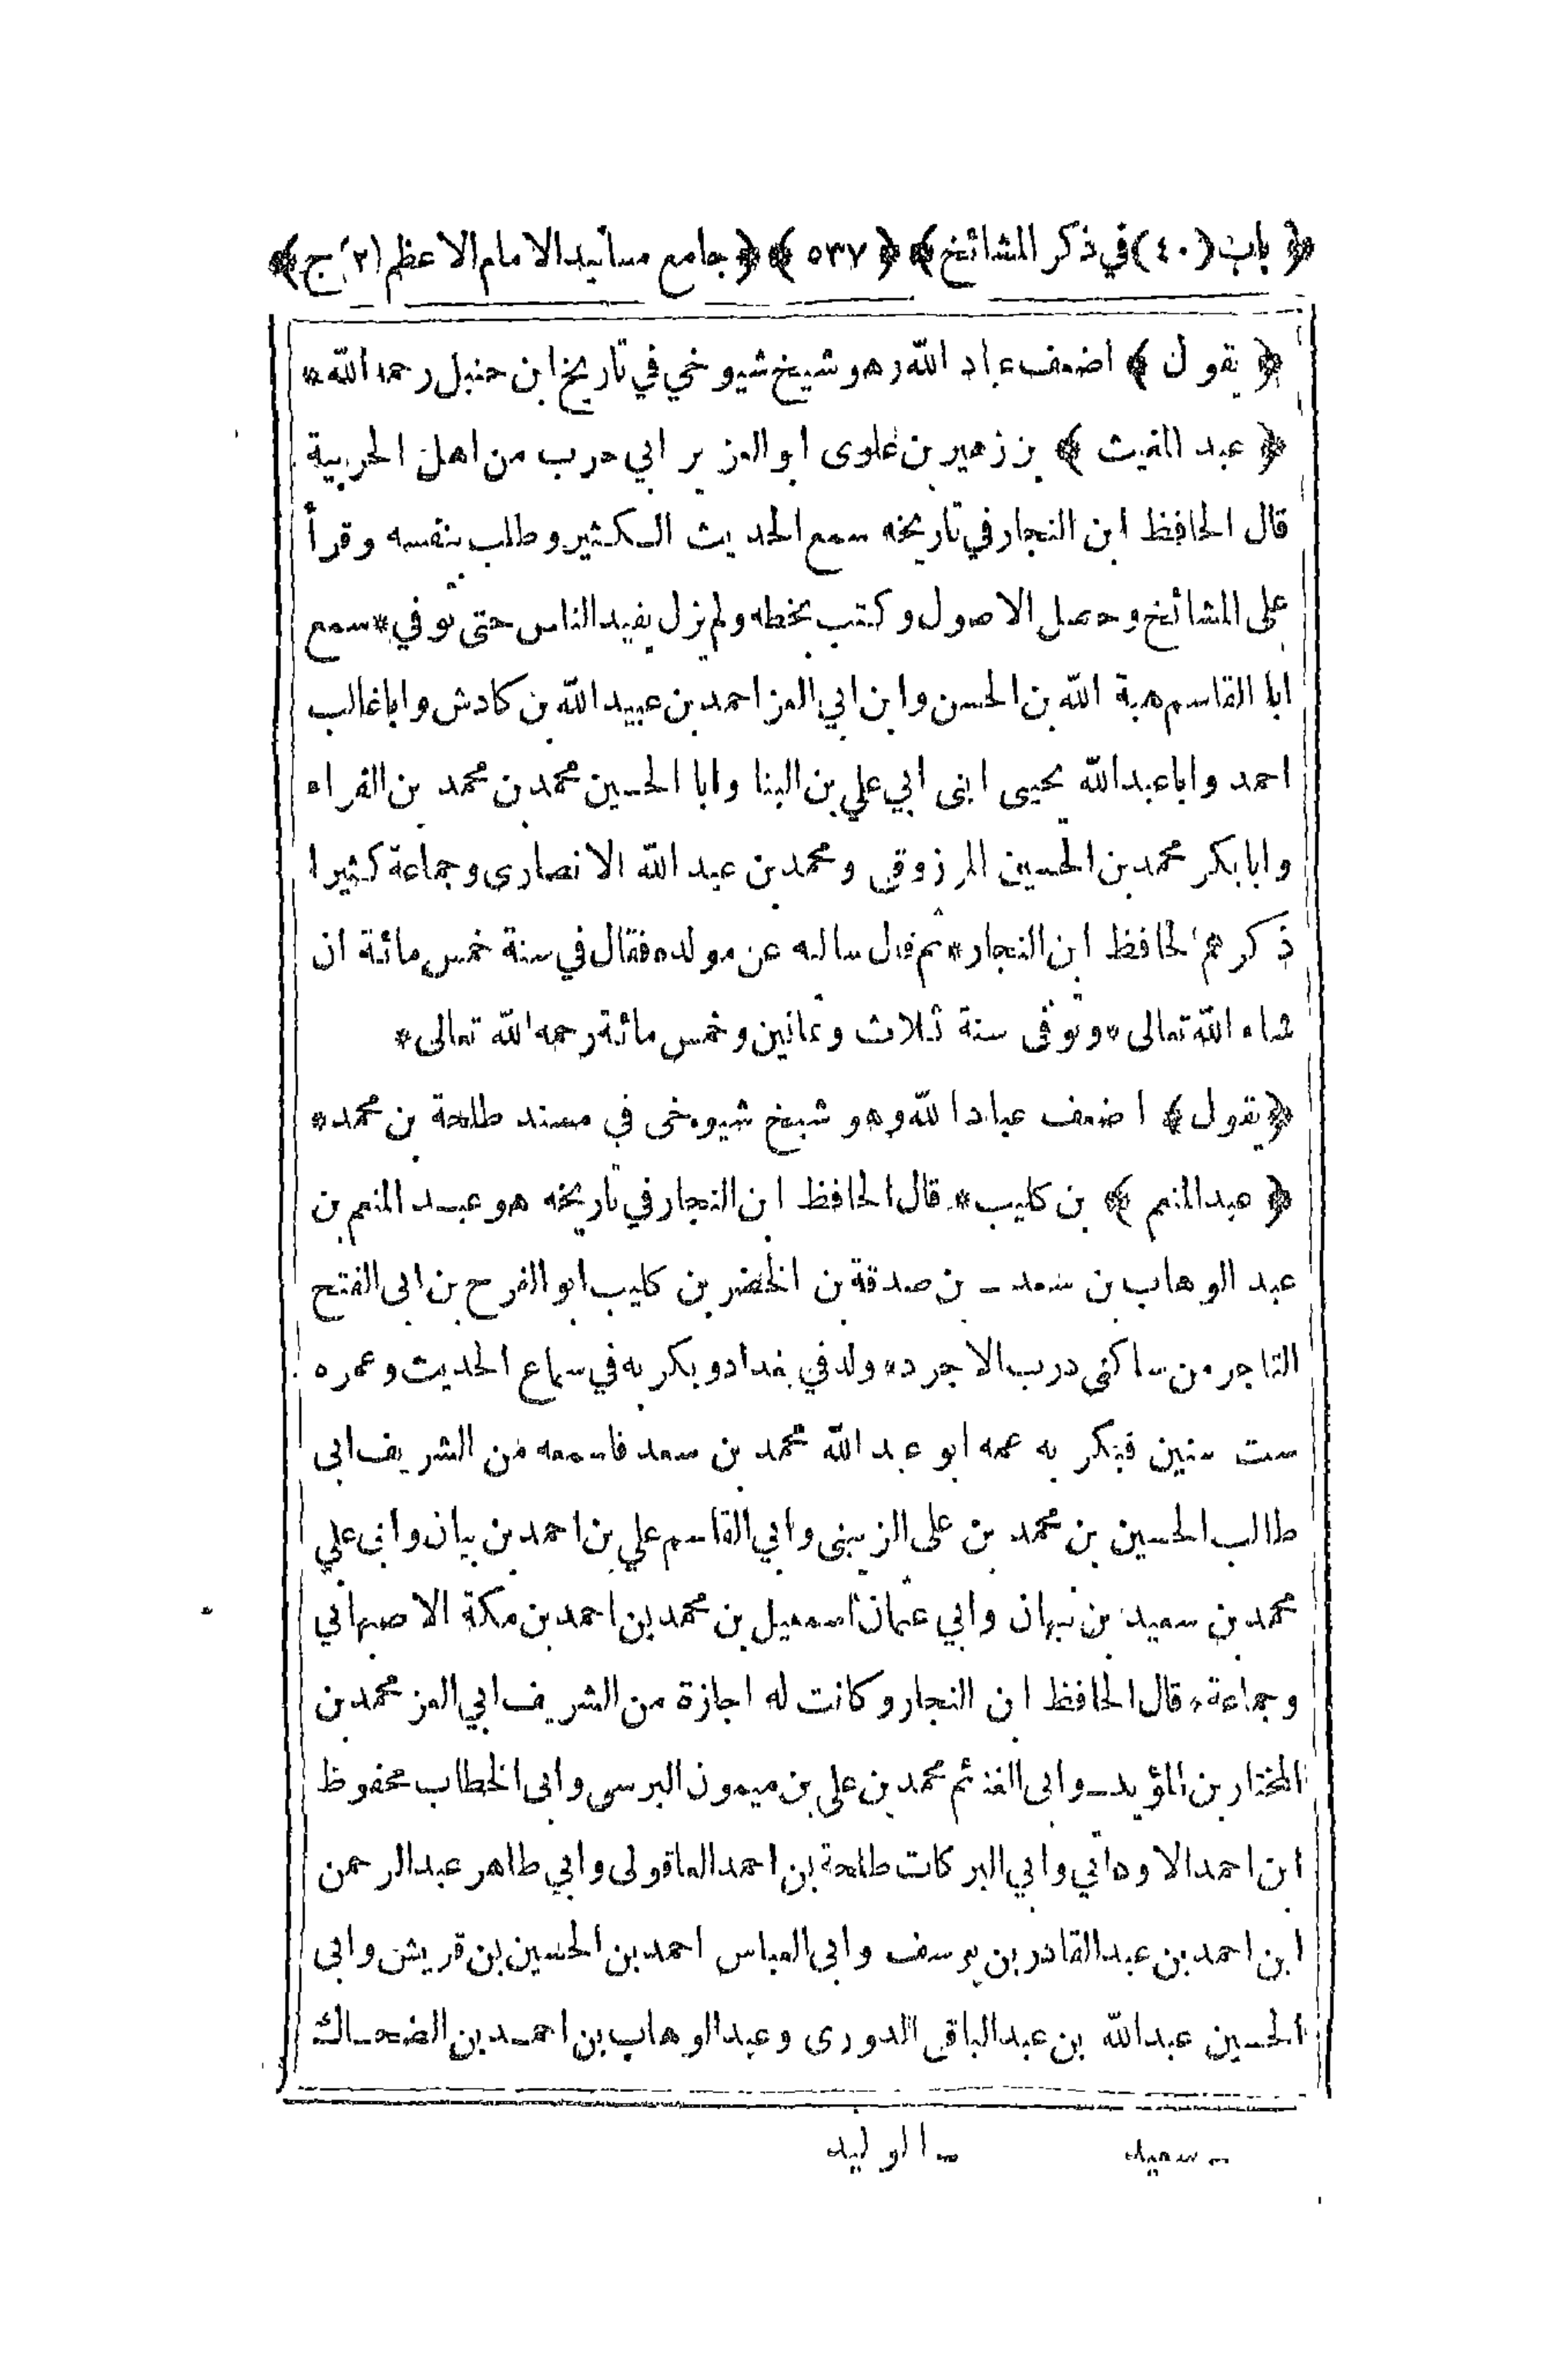 ﴿ باب (٤٠) في ذكر المشائخ ﴾ ﴿ ٥٣٧ ﴾ ﴿ جامع مسانيد الامام الاعظم (٢ ج) ﴾
﴿ يقول ﴾ اضعف عباد الله وهو شيخ شيوخي في تاريخ ابن حنبل رحمه الله *
﴿ عبد المغيث ﴾ بن زهير بن علوى ابو العز بن ابي حرب من اهل الحربية
قال الحافظ ابن النجار في تاريخه سمع الحديث الكثير وطلب بنفسه وقرأ
على المشائخ وحصل الاصول وكتب بخطه ولم يزل يفيد الناس حتى توفي * سمع
ابا القاسم هبة الله بن الحسن وابن ابي العز احمد بن عبيد الله بن كادش وابا غالب
احمد وابا عبد الله يحيى ابنى ابي علي بن البنا وابا الحسين محمد بن محمد بن الفراء
وابا بكر محمد بن الحسين المرزوقي ومحمد بن عبد الله الانصارى وجماعة كثيرا
ذكرهم الحافظ ابن النجار * ثم قال سالته عن مولده فقال في سنة خمس مائة ان
شاء الله تعالى * وتوفى سنة ثلاث وثمانين وخمس مائة رحمه الله تعالى *
﴿ يقول ﴾ اضعف عباد الله وهو شيخ شيوخى في مسند طلحة بن محمد *
﴿ عبد المنعم ﴾ بن كليب * قال الحافظ ابن النجار في تاريخه هو عبد المنعم بن
عبد الوهاب بن سعد ـ بن صدقة بن الخضر بن كليب ابو الفرح بن ابى الفتح
التاجر من ساكنى درب الاجرد * ولد في بغداد وبكر به في سماع الحديث وعمره
ست سنين فبكر به عمه ابو عبد الله محمد بن سعد فاسمعه من الشريف ابى
طالب الحسين بن محمد بن على الزينبى وابي القاسم علي بن احمد بن بيان وابى علي
محمد بن سعيد بن نبهان وابي عثمان اسمعيل بن محمد بن احمد بن مكة الاصبهاني
وجماعة * قال الحافظ ابن النجار وكانت له اجازة من الشريف ابي العز محمد بن
المختار بن المؤيد ـ وابى الغنائم محمد بن علي بن ميمون البرسى وابى الخطاب محفوظ
ابن احمد الاوداني وابي البركات طلحة بن احمد العاقولى وابي طاهر عبد الرحمن
ابن احمد بن عبد القادر بن يوسف وابى العباس احمد بن الحسين بن قريش وابي
الحسين عبد الله بن عبد الباقي الدورى وعبد الوهاب بن احمد بن الضحاك
ـ سعيد ـ الوليد